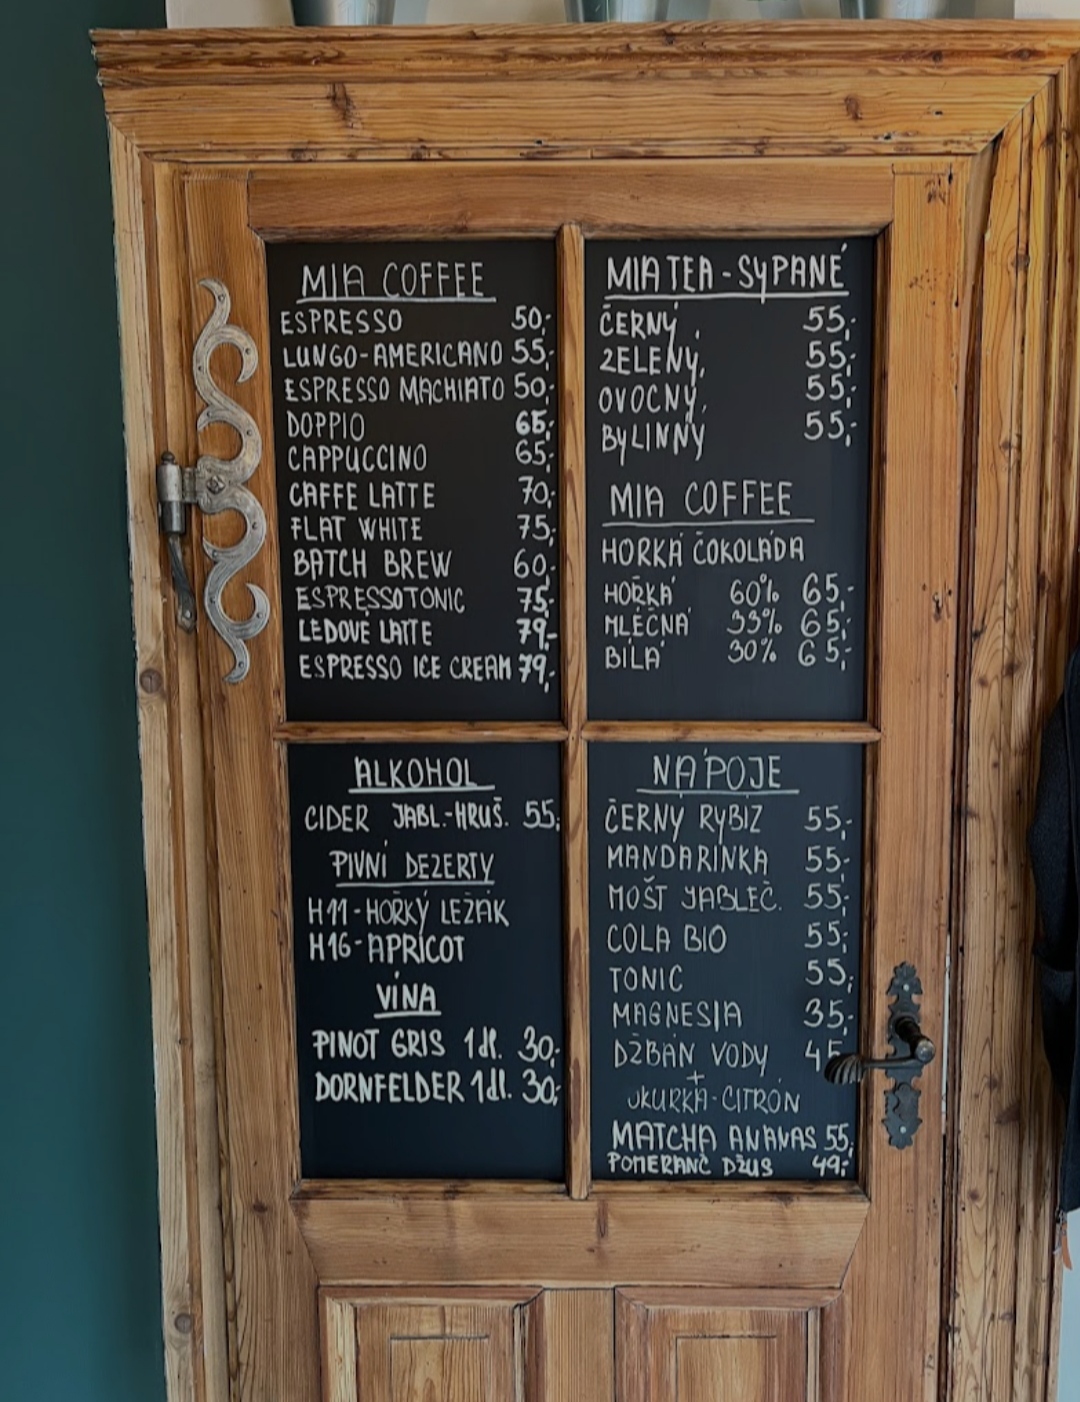 MIA COFFEE
ESPRESSO 50,-
LUNGO-AMERICANO 55,-
ESPRESSO MACHIATO 50,-
DOPPIO 65,-
CAPPUCCINO 65,-
CAFFE LATTE 70,-
FLAT WHITE 75,-
BATCH BREW 60,-
ESPRESSOTONIC 75,-
LEDOVÉ LATTE 79,-
ESPRESSO ICE CREAM 79,-
MIA TEA - SYPANÉ
ČERNÝ, 55,-
ZELENÝ, 55,-
OVOCNÝ, 55,-
BYLINNÝ 55,-
MIA COFFEE
HORKÁ ČOKOLÁDA
HOŘKÁ 60% 65,-
MLÉČNÁ 33% 65,-
BÍLÁ 30% 65,-
ALKOHOL
CIDER JABL.-HRUŠ. 55,-
PIVNÍ DEZERTY
H11-HOŘKÝ LEŽÁK
H16-APRICOT
VÍNA
PINOT GRIS 1dl. 30,-
DORNFELDER 1dl. 30,-
NÁPOJE
ČERNÝ RYBÍZ 55,-
MANDARINKA 55,-
MOŠT JABLEČ. 55,-
COLA BIO 55,-
TONIC 55,-
MAGNESIA 35,-
DŽBÁN VODY 45
+
OKURKA-CITRÓN
MATCHA ANANAS 55,-
POMERANČ DŽUS 49,-